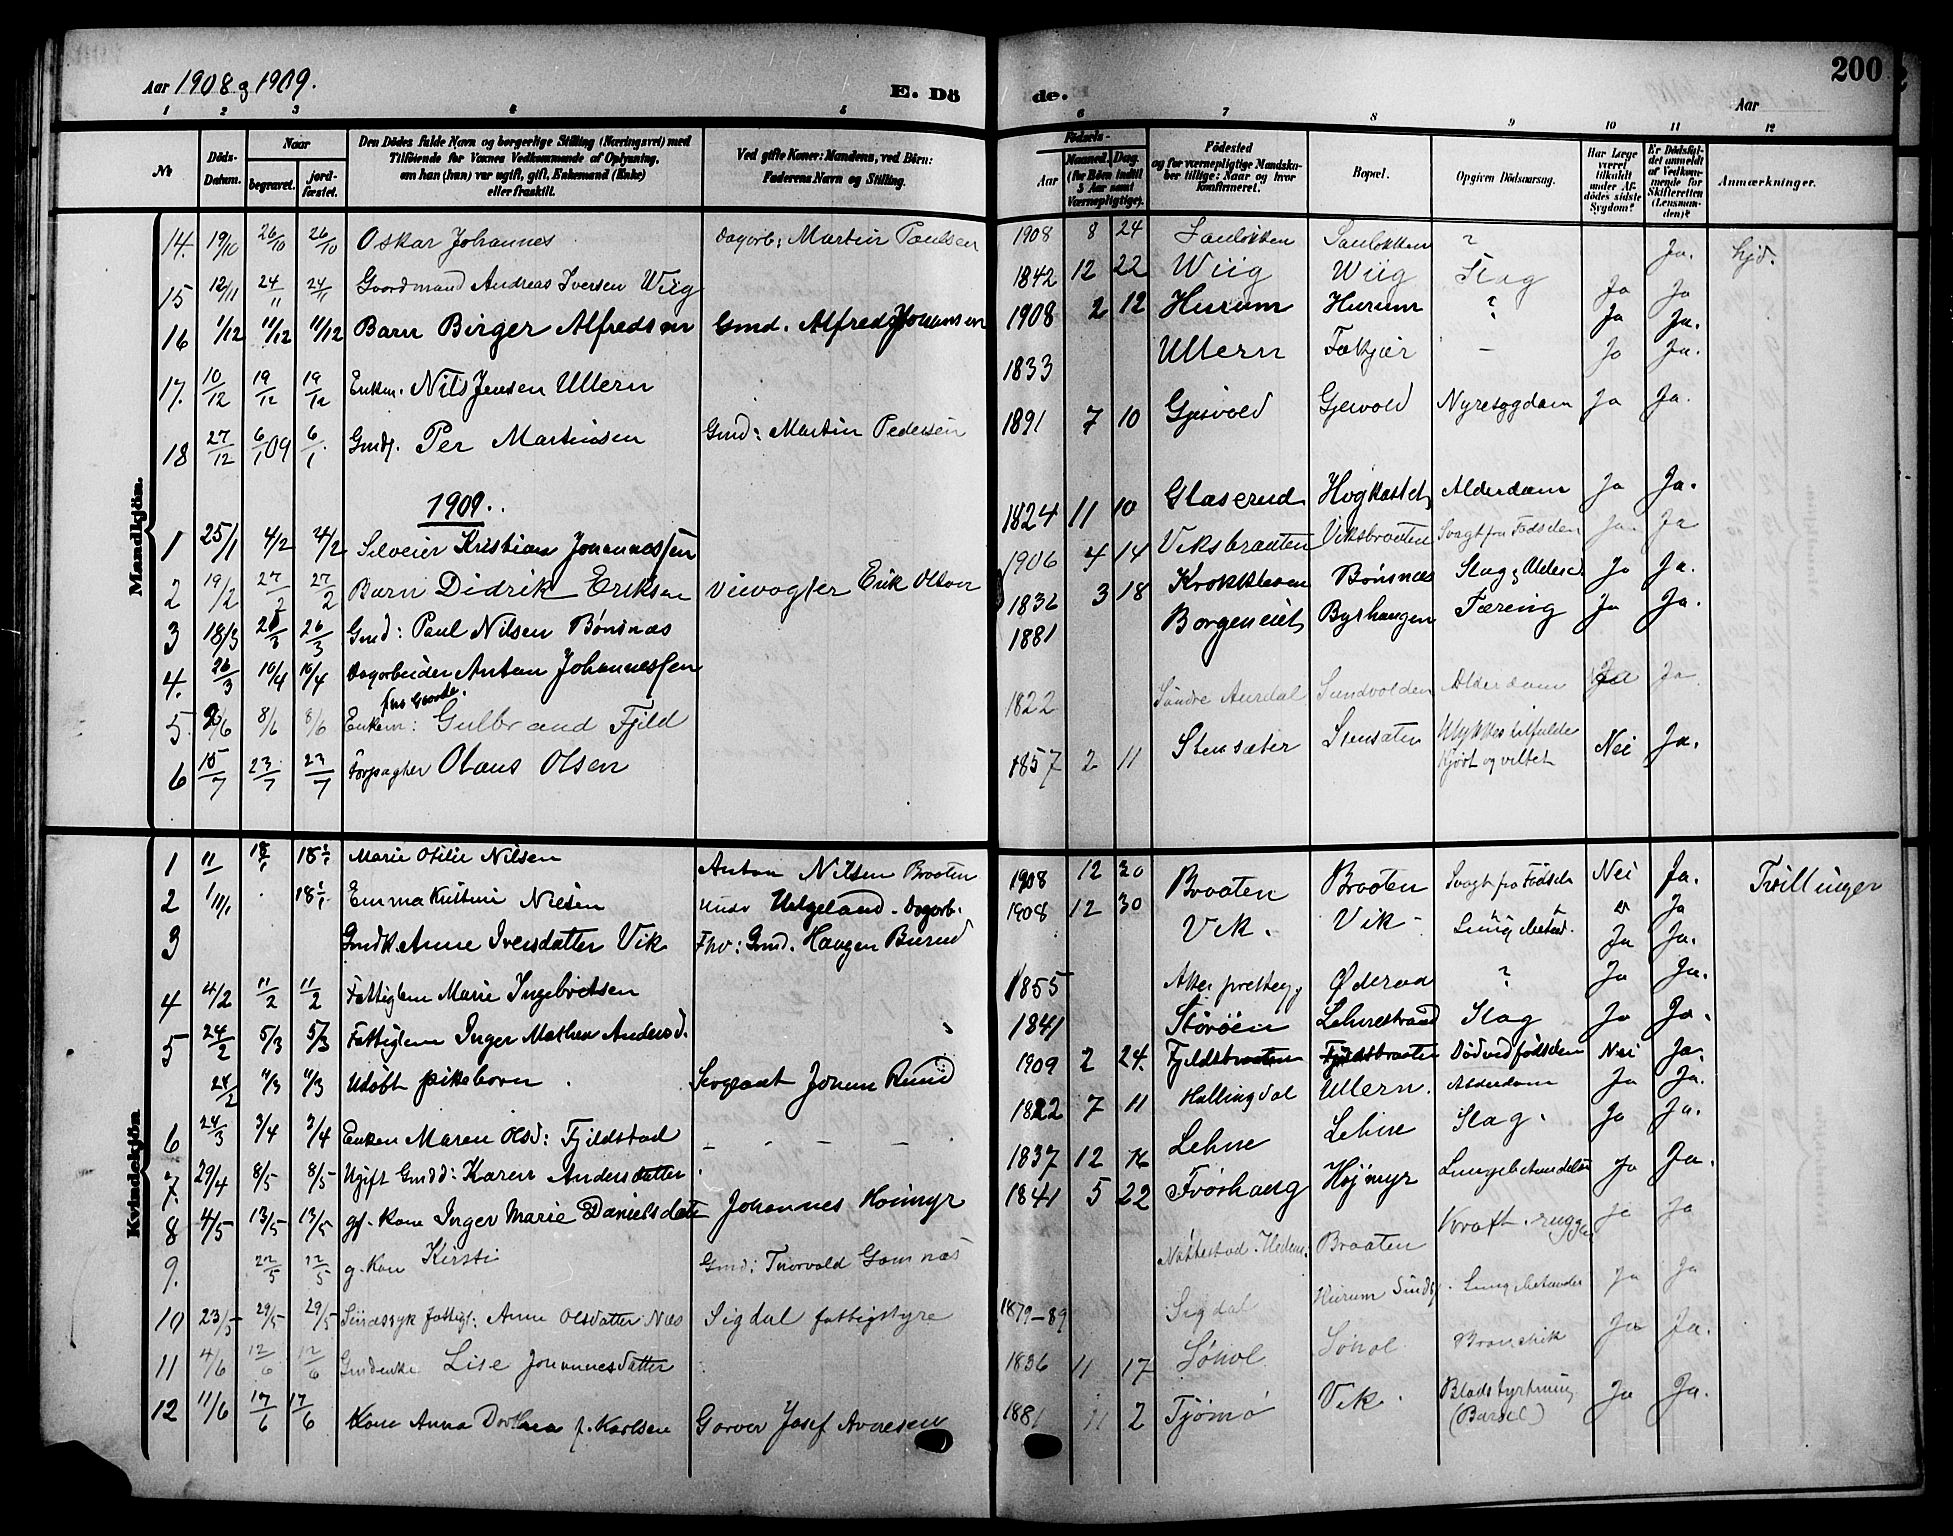 Aar 1908 g 1909. E. Dö de. Aar 200
1 2 3 4 5 6 7 8 9 10 11 12
No Döds-Datum. Naar begravet. jord-fæstet. Den Dödes fulde Navn og borgerlige Stilling (Næringsvei) med Tilföiende for Voxnes Vedkommende af Oplysning, om han (hun) var ugift, gift, Enkemand (Enke) eller fraskilt. Ved gifte Koner: Mandens, ved Börn: Faderens Navn og Stilling. Födsels- Aar Maaned. Dag. (for Börn indtil 5 Aar samt Værnepligtige). Födested og for værnepligtige Mandskaber tillige: Naar og hvor konfirmeret. Bopæl. Opgiven Dödsaarsag. Har Læge været tilkaldt under Afdödes sidste Sygdom? Er Dödsfaldet anmeldt af Vedkommende for Skifteretten (Lensmanden)? Anmærkninger.
Mandkjön.
14. 19/10 26/10 26/10 Oskar Johannes Dagarb: Martin Paulsen 1908 8 24 ? Ja.
15 12/11 24/11 24/11 Gaardmand Andreas Iversen Wiig 1842 12 22 Wiig Wiig Slag Ja Ja
16 1/12 11/12 11/12 Barn Birger Alfredsen Gmd. Alfred Johansen 1908 2 12 Hurum Hurum ? Ja Ja.
17. 10/12 19/12 19/12 Enkem. Nils Jensen Ullern 1833 Ullern Fækjær — Ja Ja.
18 27/12 6/1 09 6/1 Gmds. Per Martinsen Gmd: Martin Pedersen 1891 7 10 Gjesvold Gjesvold Nyresygdom Ja Ja.
1909.
1 25/1 4/2 4/2 Kristian Johannessen 1824 11 10 Glaserud Hogkastet Alderdom Ja Ja.
2 19/2 27/2 27/2 Barn Didrik Eriksen Veivogter Erik Olsen 1906 4 14 Viksbraaten Viksbraaten Svagt fra Födselen Ja Ja
3 18/3 26/3 26/3 Gmd: Paul Nilsen Bönsnæs 1832 3 18 Krokkleven Bönsnæs Slag g Alders Ja Ja.
4. 26/3 10/4 10/4 Dagarbeider Anton Johannessen 1881 Borgeneiet Byshaugen Tæring Ja Ja.
5. 2/6 8/6 8/6 Enkem: Gulbrand Fjeld 1822 Söndre Aurdal Sundvolden Alderdom Ja Ja.
6 15/7 23/7 23/7 Forpagter Olaus Olsen 1857 2 11 Stensæter Stensæter Ulykkestilfælde Kjört og veltet Nei Ja.
Kvindekjön
1 11 18/1 18/1 Marie Otilie Nilsen Anton Nilsen Braaten 1908 12 30 Braaten Braaten Svagt fra Födsele Nei Ja. Tvillinger
2 1/1 18/1 Emma Kristine Nilsen Helgeland. Dagarb. 1908 12 30 Ja
3 Gmdk. Anne Iversdatter Vik Fhv: Gmd. Haagen Burud Vik. Vik Lungebetænd. Ja Ja.
4 4/2 11/2 11/2 Fattiglem Marie Ingebretsen 1855 Asker præsteg. Öderud ? Ja Ja.
5 24/2 5/3 5/3 Fattiglem Inger Mathea Andersd. 1841 Storöen Lehnestrand Slag Ja Ja.
24/2 11/3 11/3 Udöbt pikebarn Sergeant Johan Rund 1909 2 24. Fjeldsbraaten Fjeldsbraaten Död ved födselen Nei Ja.
6 24/3 3/4 3/4 Enken Maren Olsd: Fjeldstad — — — — 1822 7 11 Hallingdal Ullern. Alderdom Ja Ja.
7. 29/4 8/5 8/5 Ugift Gmdd: Karen Andersdatter 1837 12 16 Lehne Lehne Slag. Ja Ja.
8 4/5 13/5 13/5 gf. kone Inger Marie Danielsdatte Johannes Höimyr 1841 5 22 Tvörhaug Höjmyr Lungebetændelse Ja Ja.
9. 22/5 22/5 g. kone Kirsti Gmd: Thorvald Gomnæs Nökkestad. Braaten Kræft. Ja Ja
10 23/5 29/5 29/5 Sindssyk fattigl: Anne Olsdatter Næs Sigdal fattigstyre 1879-89 Sigdal Hurum Lungebetændelse Ja Ja
11 4/6 12/6 12/6 Gmdenke Lise Johannesdatter 1836 11 17 Söhol Söhol Bronchik Ja Ja.
12 11/6 17/6 17/6 Kone Anna Dorthea f. Karlsen Garver Josef 1881 11 2 Tjömö Vik. Blodstyrtning (Barsel) Ja Ja.